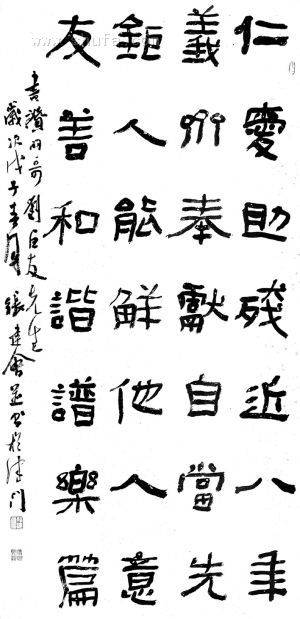 仁愛助殘近八年
義州奉獻自當先
鉅人能解他人意
友善和諧譜樂篇
書讚的哥劉巨友先生
歲次戊子春月張建會並書於津門